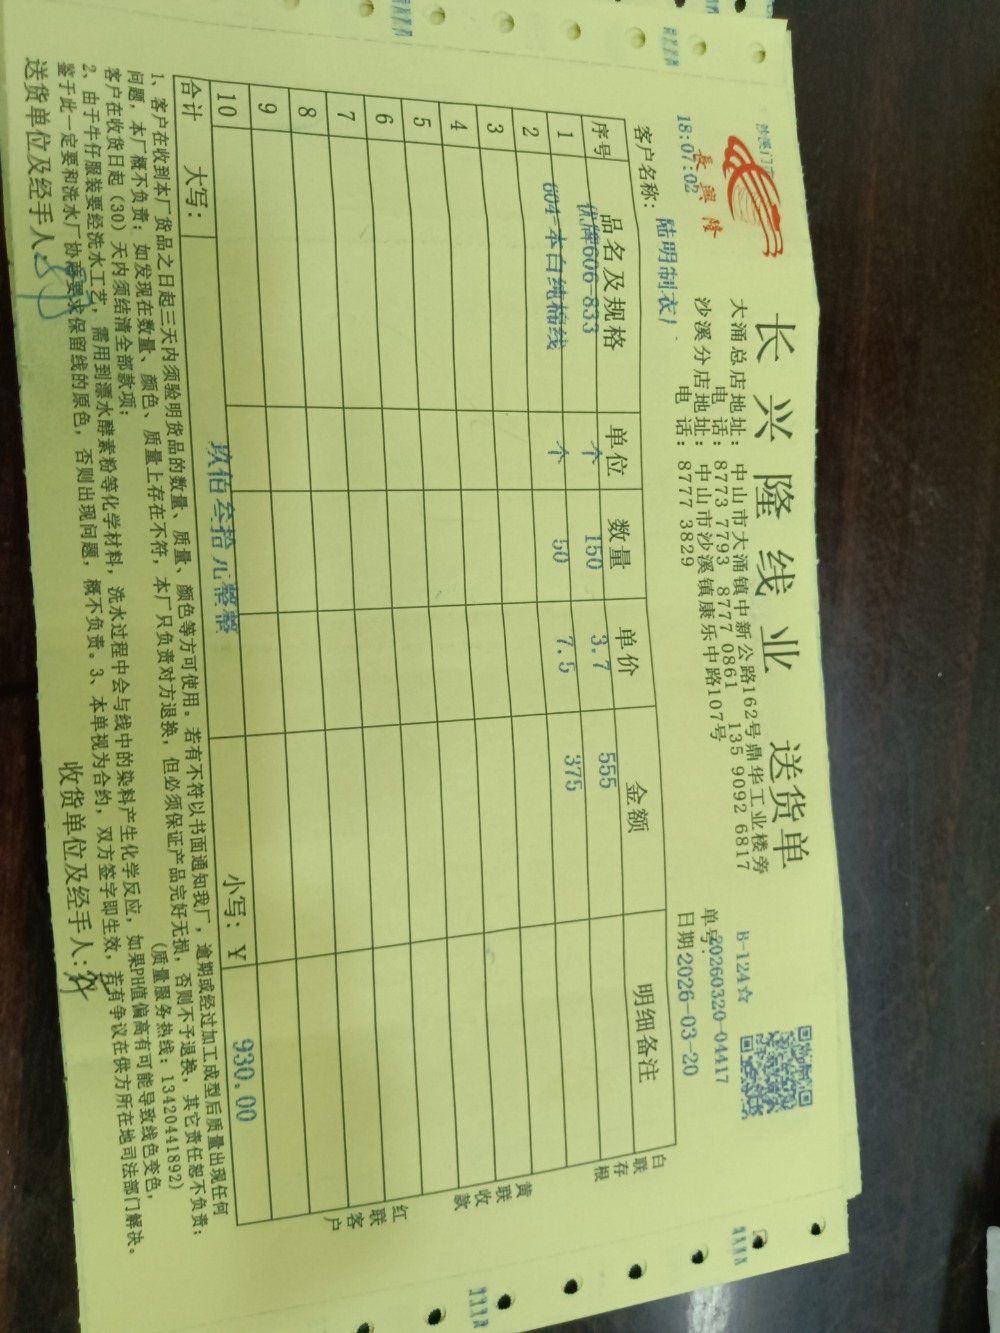 长兴隆线业 送货单
長興隆
大涌总店地址：中山市大涌镇中新公路162号鼎华工业楼旁
电 话：8773 7793 8777 0861 135 9092 6817
沙溪分店地址：中山市沙溪镇康乐中路107号
电 话：8777 3829
B-124☆
单号：20260320-04417
日期2026-03-20
18:07:02
客户名称：陆明制衣厂
序号 品名及规格 单位 数量 单价 金额 明细备注
1 优牌606-833 个 150 3.7 555
2 604-本白纯棉线 个 50 7.5 375
3
4
5
6
7
8
9
10
合计 大写：玖佰叁拾元整整 小写：￥930.00
白联存根
黄联收款
红联客户
1、客户在收到本厂货品之日起三天内须验明货品的数量、质量、颜色等方可使用。若有不符以书面通知我厂，逾期或经过加工成型后质量出现任何
问题，本厂概不负责；如发现在数量、颜色、质量上存在不符，本厂只负责对方退换，但必须保证产品完好无损，否则不予退换，其它责任恕不负责；
客户在收货日起（30）天内须结清全部款项； （质量服务热线：13420441892）
2、由于牛仔服装要经洗水工艺，需用到漂水酵素粉等化学材料，洗水过程中会与线中的染料产生化学反应，如果PH值偏高有可能导致线色变色，
鉴于此一定要和洗水厂协商要求保留线的原色，否则出现问题，概不负责。3、本单视为合约，双方签字即生效，若有争议在供方所在地司法部门解决。
送货单位及经手人： 收货单位及经手人：